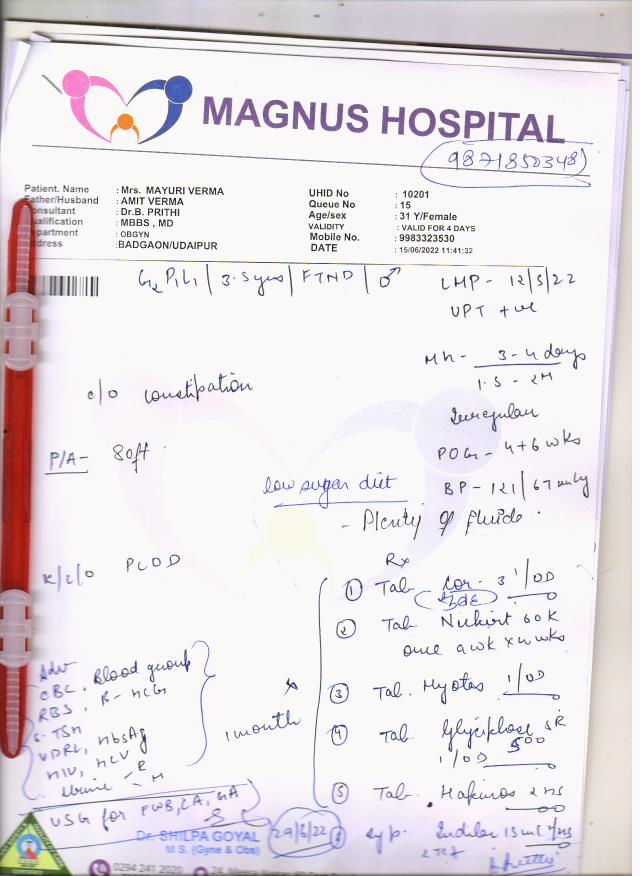 MAGNUS HOSPITAL
9871850348
Patient. Name : Mrs. MAYURI VERMA
Father/Husband : AMIT VERMA
Consultant : Dr.B. PRITHI
Qualification : MBBS , MD
Department : OBGYN
Address : BADGAON/UDAIPUR
UHID No : 10201
Queue No : 15
Age/sex : 31 Y/Female
VALIDITY : VALID FOR 4 DAYS
Mobile No. : 9983323530
DATE : 15/06/2022 11:41:32
G2 P1 L1 / 3.5 yrs / FTND / ♂
LMP - 12/5/22
UPT + ve
MH - 3-4 days
1.5 - 2M
Irregular
POG - 4+6 wks
BP - 121/67 mmHg
c/o constipation
P/A - Soft
low sugar diet
- Plenty of fluids.
K/c/o PCOD
Rx
① Tab 1/OD
② Tab 60K
once a wk x wks
③ Tab. 1/OD
④ Tab. SR
500
1/OD
⑤ Tab.
⑥ Syp. 15ml
Adv
CBC, Blood group
RBS, B-HCG
S. TSH
VDRL, HbsAg
HIV, HCV
Urine - R
- M
1 month
USG for FWB, CA, GA
29/6/22
Dr. SHILPA GOYAL
M.S. (Gyne & Obs)
0294 241 2020